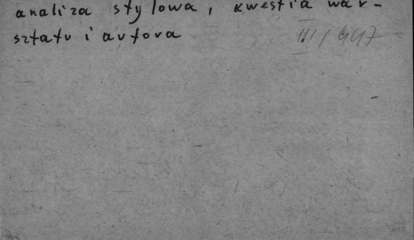 analiza stylowa, kwestia war-
sztatu i autora